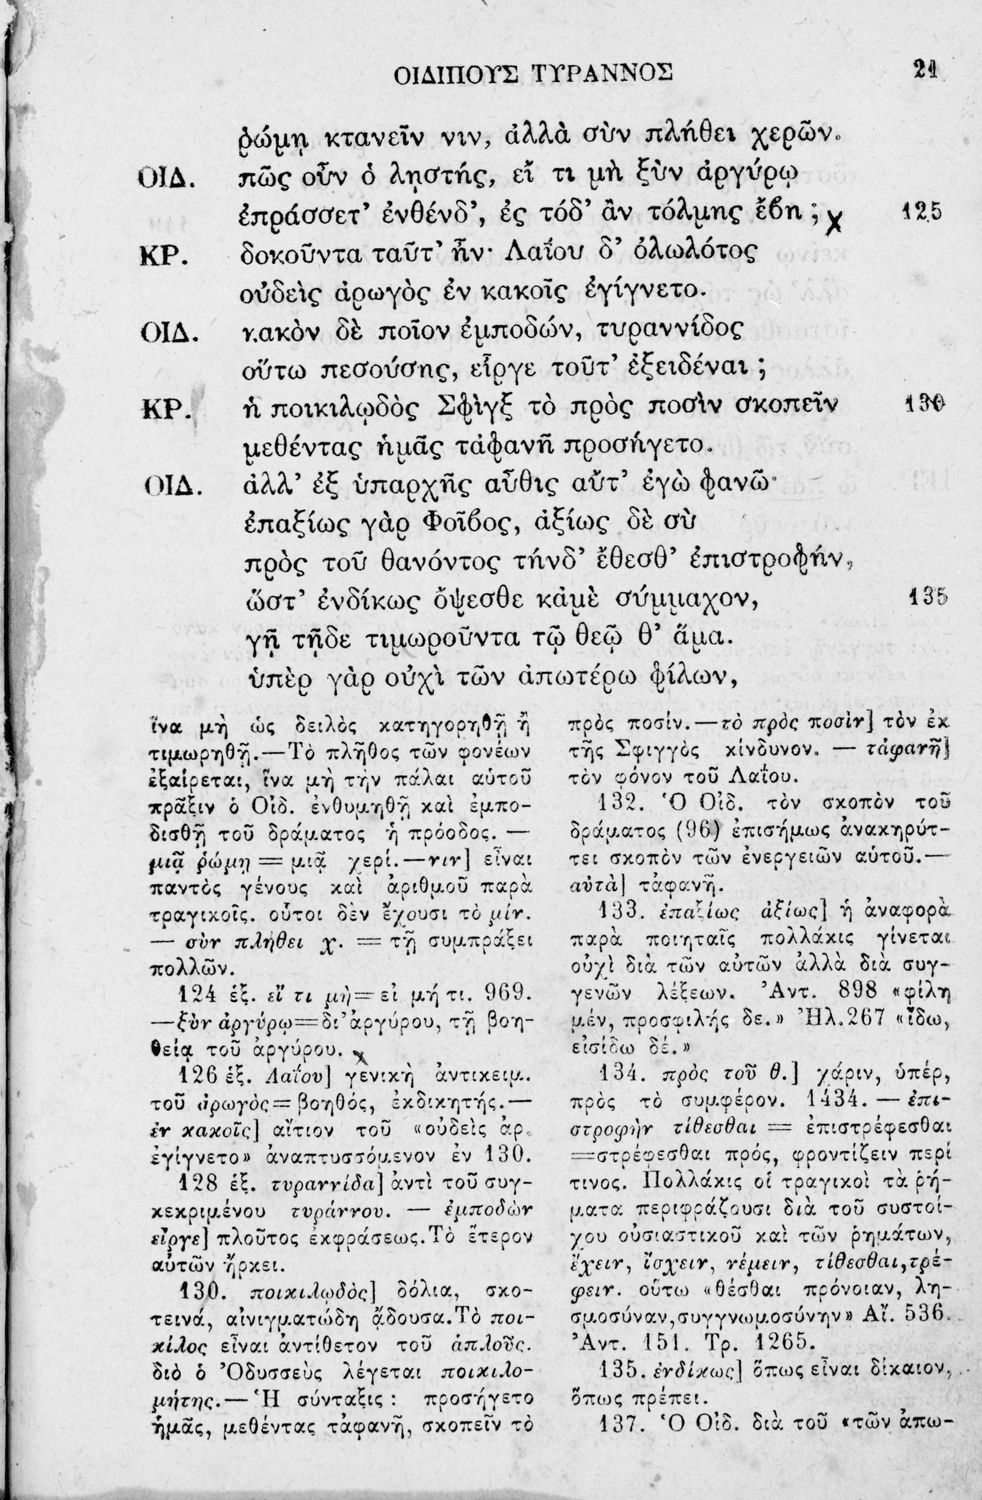 ΟΙΔΙΠΟΥΣ ΤΥΡΑΝΝΟΣ
21
ῥώμῃ κτανεῖν νιν, ἀλλὰ σὺν πλήθει χερῶν.
ΟΙΔ. πῶς οὖν ὁ λῃστής, εἴ τι μὴ ξὺν ἀργύρῳ
ἐπράσσετ’ ἐνθένδ’, ἐς τόδ’ ἂν τόλμης ἔβη ; 125
ΚΡ. δοκοῦντα ταῦτ’ ἦν· Λαΐου δ’ ὀλωλότος
οὐδεὶς ἀρωγὸς ἐν κακοῖς ἐγίγνετο.
ΟΙΔ. κακὸν δὲ ποῖον ἐμποδών, τυραννίδος
οὕτω πεσούσης, εἶργε τοῦτ’ ἐξειδέναι ;
ΚΡ. ἡ ποικιλῳδὸς Σφὶγξ τὸ πρὸς ποσὶν σκοπεῖν 130
μεθέντας ἡμᾶς τἀφανῆ προσήγετο.
ΟΙΔ. ἀλλ’ ἐξ ὑπαρχῆς αὖθις αὔτ’ ἐγὼ φανῶ·
ἐπαξίως γὰρ Φοῖβος, ἀξίως δὲ σὺ
πρὸς τοῦ θανόντος τήνδ’ ἔθεσθ’ ἐπιστροφήν,
ὥστ’ ἐνδίκως ὄψεσθε κἀμὲ σύμμαχον, 135
γῇ τῇδε τιμωροῦντα τῷ θεῷ θ’ ἅμα.
ὑπὲρ γὰρ οὐχὶ τῶν ἀπωτέρω φίλων,
ἵνα μὴ ὡς δειλὸς κατηγορηθῇ ἢ
τιμωρηθῇ.—Τὸ πλῆθος τῶν φονέων
ἐξαίρεται, ἵνα μὴ τὴν πάλαι αὐτοῦ
πρᾶξιν ὁ Οἰδ. ἐνθυμηθῇ καὶ ἐμπο-
δισθῇ τοῦ δράματος ἡ πρόοδος. —
μιᾷ ῥώμῃ = μιᾷ χερί.—νιν] εἶναι
παντὸς γένους καὶ ἀριθμοῦ παρὰ
τραγικοῖς. οὗτοι δὲν ἔχουσι τὸ μίν.
— σὺν πλήθει χ. = τῇ συμπράξει
πολλῶν.
124 ἑξ. εἴ τι μὴ= εἰ μή τι. 969.
—ξὺν ἀργύρῳ=δι’ἀργύρου, τῇ βοη-
θείᾳ τοῦ ἀργύρου.
126 ἑξ. Λαΐου] γενικὴ ἀντικειμ.
τοῦ ἀρωγὸς= βοηθός, ἐκδικητής.—
ἐν κακοῖς] αἴτιον τοῦ «οὐδεὶς ἀρ.
ἐγίγνετο» ἀναπτυσσόμενον ἐν 130.
128 ἑξ. τυραννίδα] ἀντὶ τοῦ συγ-
κεκριμένου τυράννου. — ἐμποδὼν
εἶργε] πλοῦτος ἐκφράσεως. Τὸ ἕτερον
αὐτῶν ἤρκει.
130. ποικιλῳδὸς] δόλια, σκο-
τεινά, αἰνιγματώδη ᾄδουσα. Τὸ ποι-
κίλος εἶναι ἀντίθετον τοῦ ἁπλοῦς.
διὸ ὁ Ὀδυσσεὺς λέγεται ποικιλο-
μήτης.— Ἡ σύνταξις : προσήγετο
ἡμᾶς, μεθέντας τἀφανῆ, σκοπεῖν τὸ
πρὸς ποσίν.—τὸ πρὸς ποσὶν] τὸν ἐκ
τῆς Σφιγγὸς κίνδυνον. — τἀφανῆ]
τὸν φόνον τοῦ Λαΐου.
132. Ὁ Οἰδ. τὸν σκοπὸν τοῦ
δράματος (96) ἐπισήμως ἀνακηρύτ-
τει σκοπὸν τῶν ἐνεργειῶν αὐτοῦ.—
αὐτὰ] τἀφανῆ.
133. ἐπαξίως ἀξίως] ἡ ἀναφορὰ
παρὰ ποιηταῖς πολλάκις γίνεται
οὐχὶ διὰ τῶν αὐτῶν ἀλλὰ διὰ συγ-
γενῶν λέξεων. Ἀντ. 898 «φίλη
μέν, προσφιλής δε.» Ἠλ. 267 «ἴδω,
εἰσίδω δέ.»
134. πρὸς τοῦ θ.] χάριν, ὑπέρ,
πρὸς τὸ συμφέρον. 1434. — ἐπι-
στροφὴν τίθεσθαι = ἐπιστρέφεσθαι
=στρέφεσθαι πρός, φροντίζειν περί
τινος. Πολλάκις οἱ τραγικοὶ τὰ ῥή-
ματα περιφράζουσι διὰ τοῦ συστοί-
χου οὐσιαστικοῦ καὶ τῶν ῥημάτων,
ἔχειν, ἴσχειν, νέμειν, τίθεσθαι, τρέ-
φειν. οὕτω «θέσθαι πρόνοιαν, λη-
σμοσύναν, συγγνωμοσύνην» Αἴ. 536.
Ἀντ. 151. Τρ. 1265.
135. ἐνδίκως] ὅπως εἶναι δίκαιον,
ὅπως πρέπει.
137. Ὁ Οἰδ. διὰ τοῦ «τῶν ἀπω-